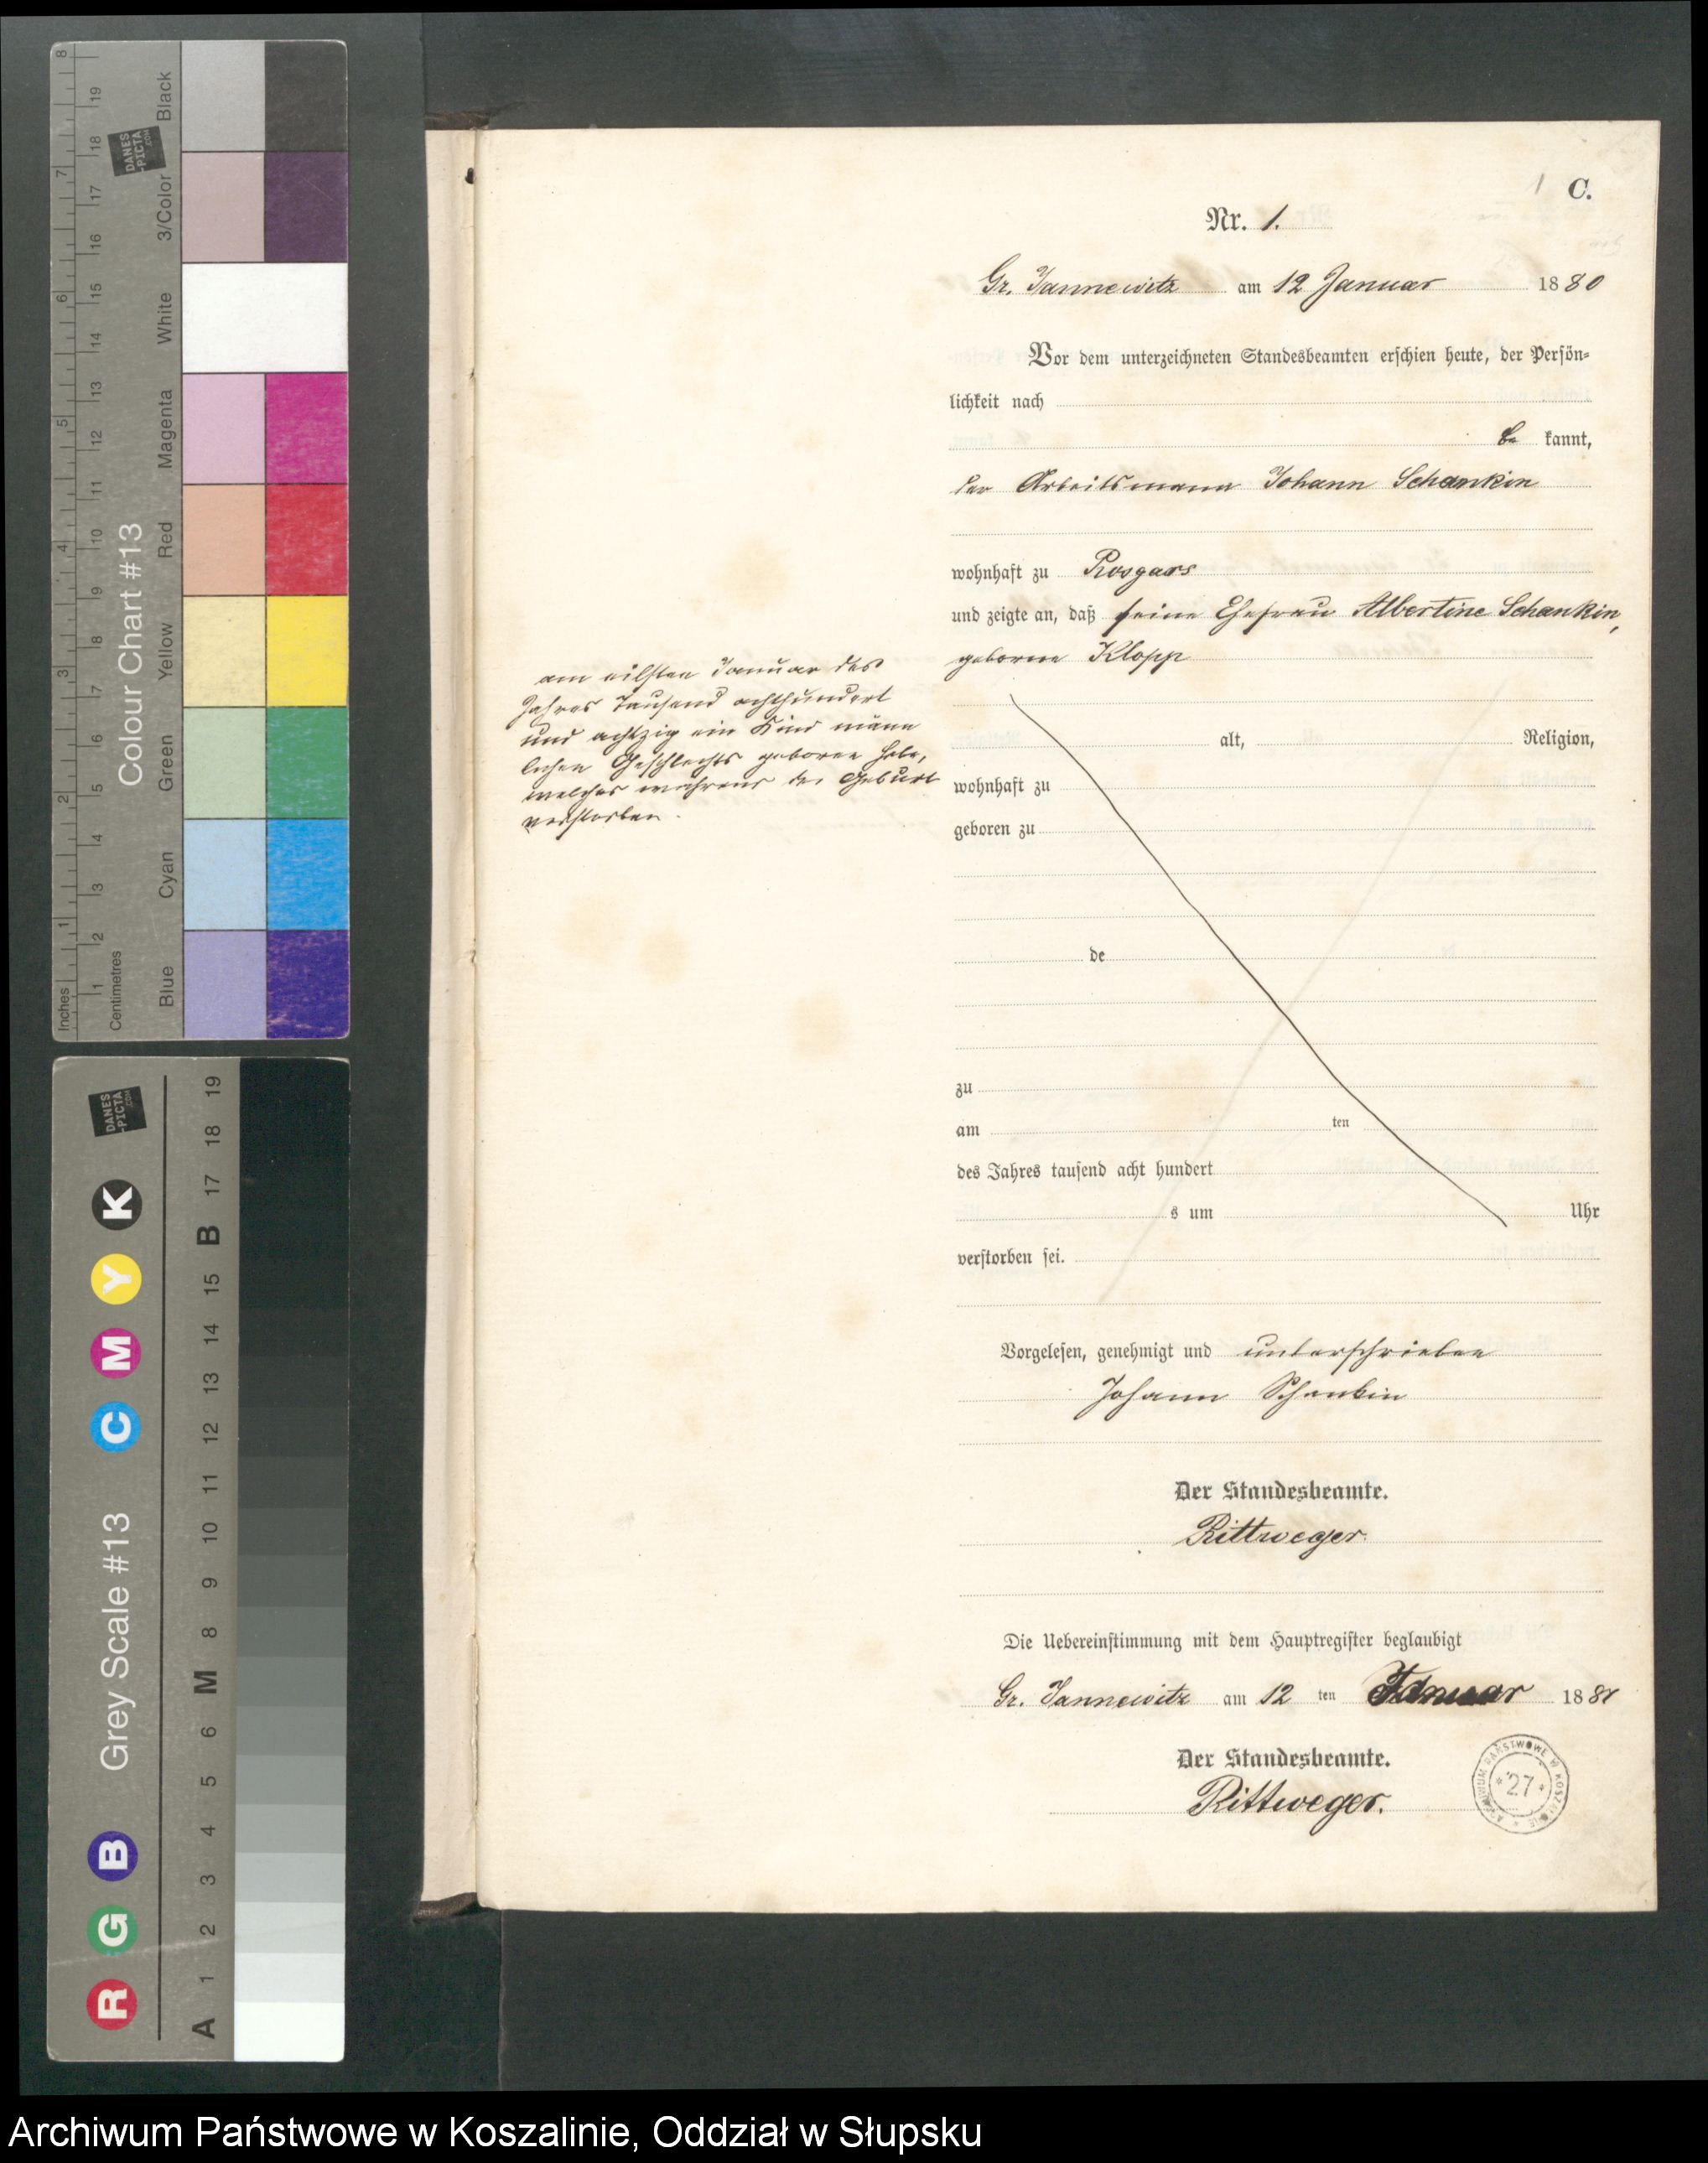 C.
1
Nr. 1.
Gr. Jannewitz am 12 Januar 1880
Vor dem unterzeichneten Standesbeamten erschien heute, der Persön-
lichkeit nach
be kannt,
der Arbeitsmann Johann Schankin
wohnhaft zu Rosgars
und zeigte an, daß seine Ehefrau Albertine Schankin,
geborene Klopp
am eilften Januar des
Jahres Tausend achthundert
und achtzig ein Kind männ
lichen Geschlechts geboren habe,
welches während der Geburt
verstorben.
alt, Religion,
wohnhaft zu
geboren zu
de
zu
am ten
des Jahres tausend acht hundert
s um Uhr
verstorben sei.
Vorgelesen, genehmigt und unterschrieben
Johann Schankin
Der Standesbeamte.
Rittweger.
Die Uebereinstimmung mit dem Hauptregister beglaubigt
Gr. Jannewitz am 12 ten Januar 188
Der Standesbeamte.
Rittweger.
ARCHIWUM PAŃSTWOWE W KOSZALINIE
* 27 *
Colour Chart #13
Blue Cyan Green Yellow Red Magenta White 3/Color Black
Inches 1 2 3 4 5 6 7 8
Centimetres 1 2 3 4 5 6 7 8 9 10 11 12 13 14 15 16 17 18 19
DANES
-PICTA
.COM
Grey Scale #13
R G B C M Y K
A 1 2 3 4 5 6 M 8 9 10 11 12 13 14 15 B 17 18 19
DANES
-PICTA
.COM
Archiwum Państwowe w Koszalinie, Oddział w Słupsku